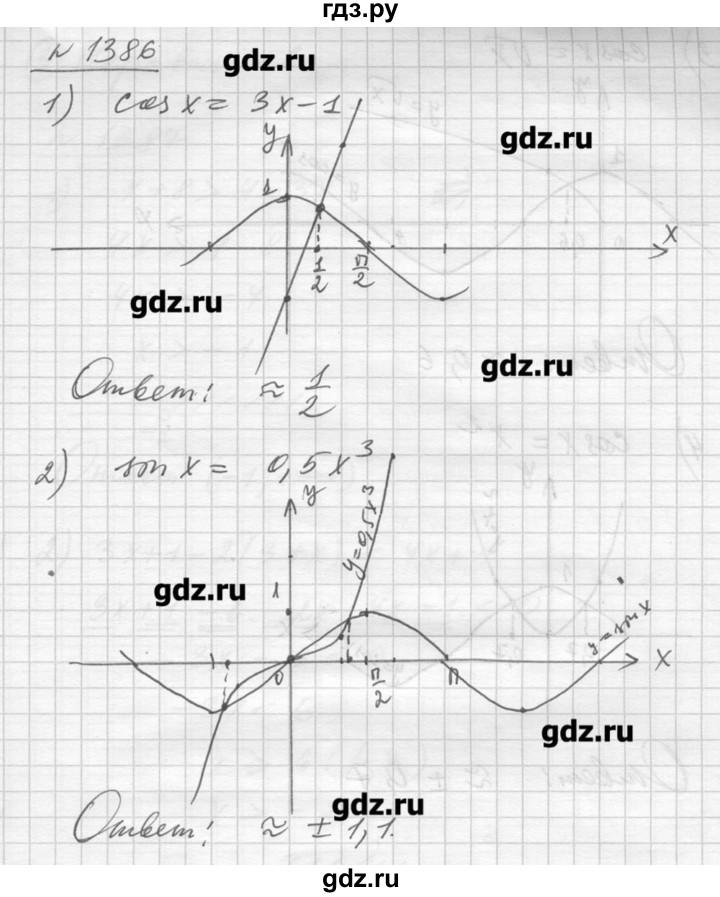 гдз.ру
№ 1386
gdz.ru
1) cos x = 3x - 1
gdz.ru
y
1
x
1/2
π/2
gdz.ru
gdz.ru
Ответ: ≈ 1/2
2) sin x = 0,5x³
y
y=0,5x³
gdz.ru
1
y=sin x
0
π/2
π
x
gdz.ru
gdz.ru
Ответ: ≈ ± 1,1.
gdz.ru